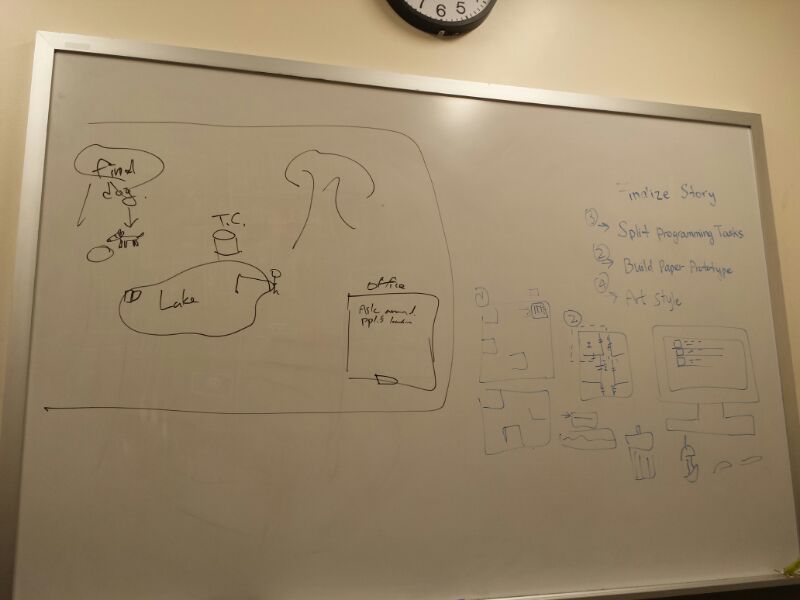 7 6 5
find
dog.
T.C.
Lake
Office
Ask around.
Finalize Story
③ → Split Programming Tasks
② → Build Paper Prototype
④ → Art Style
②